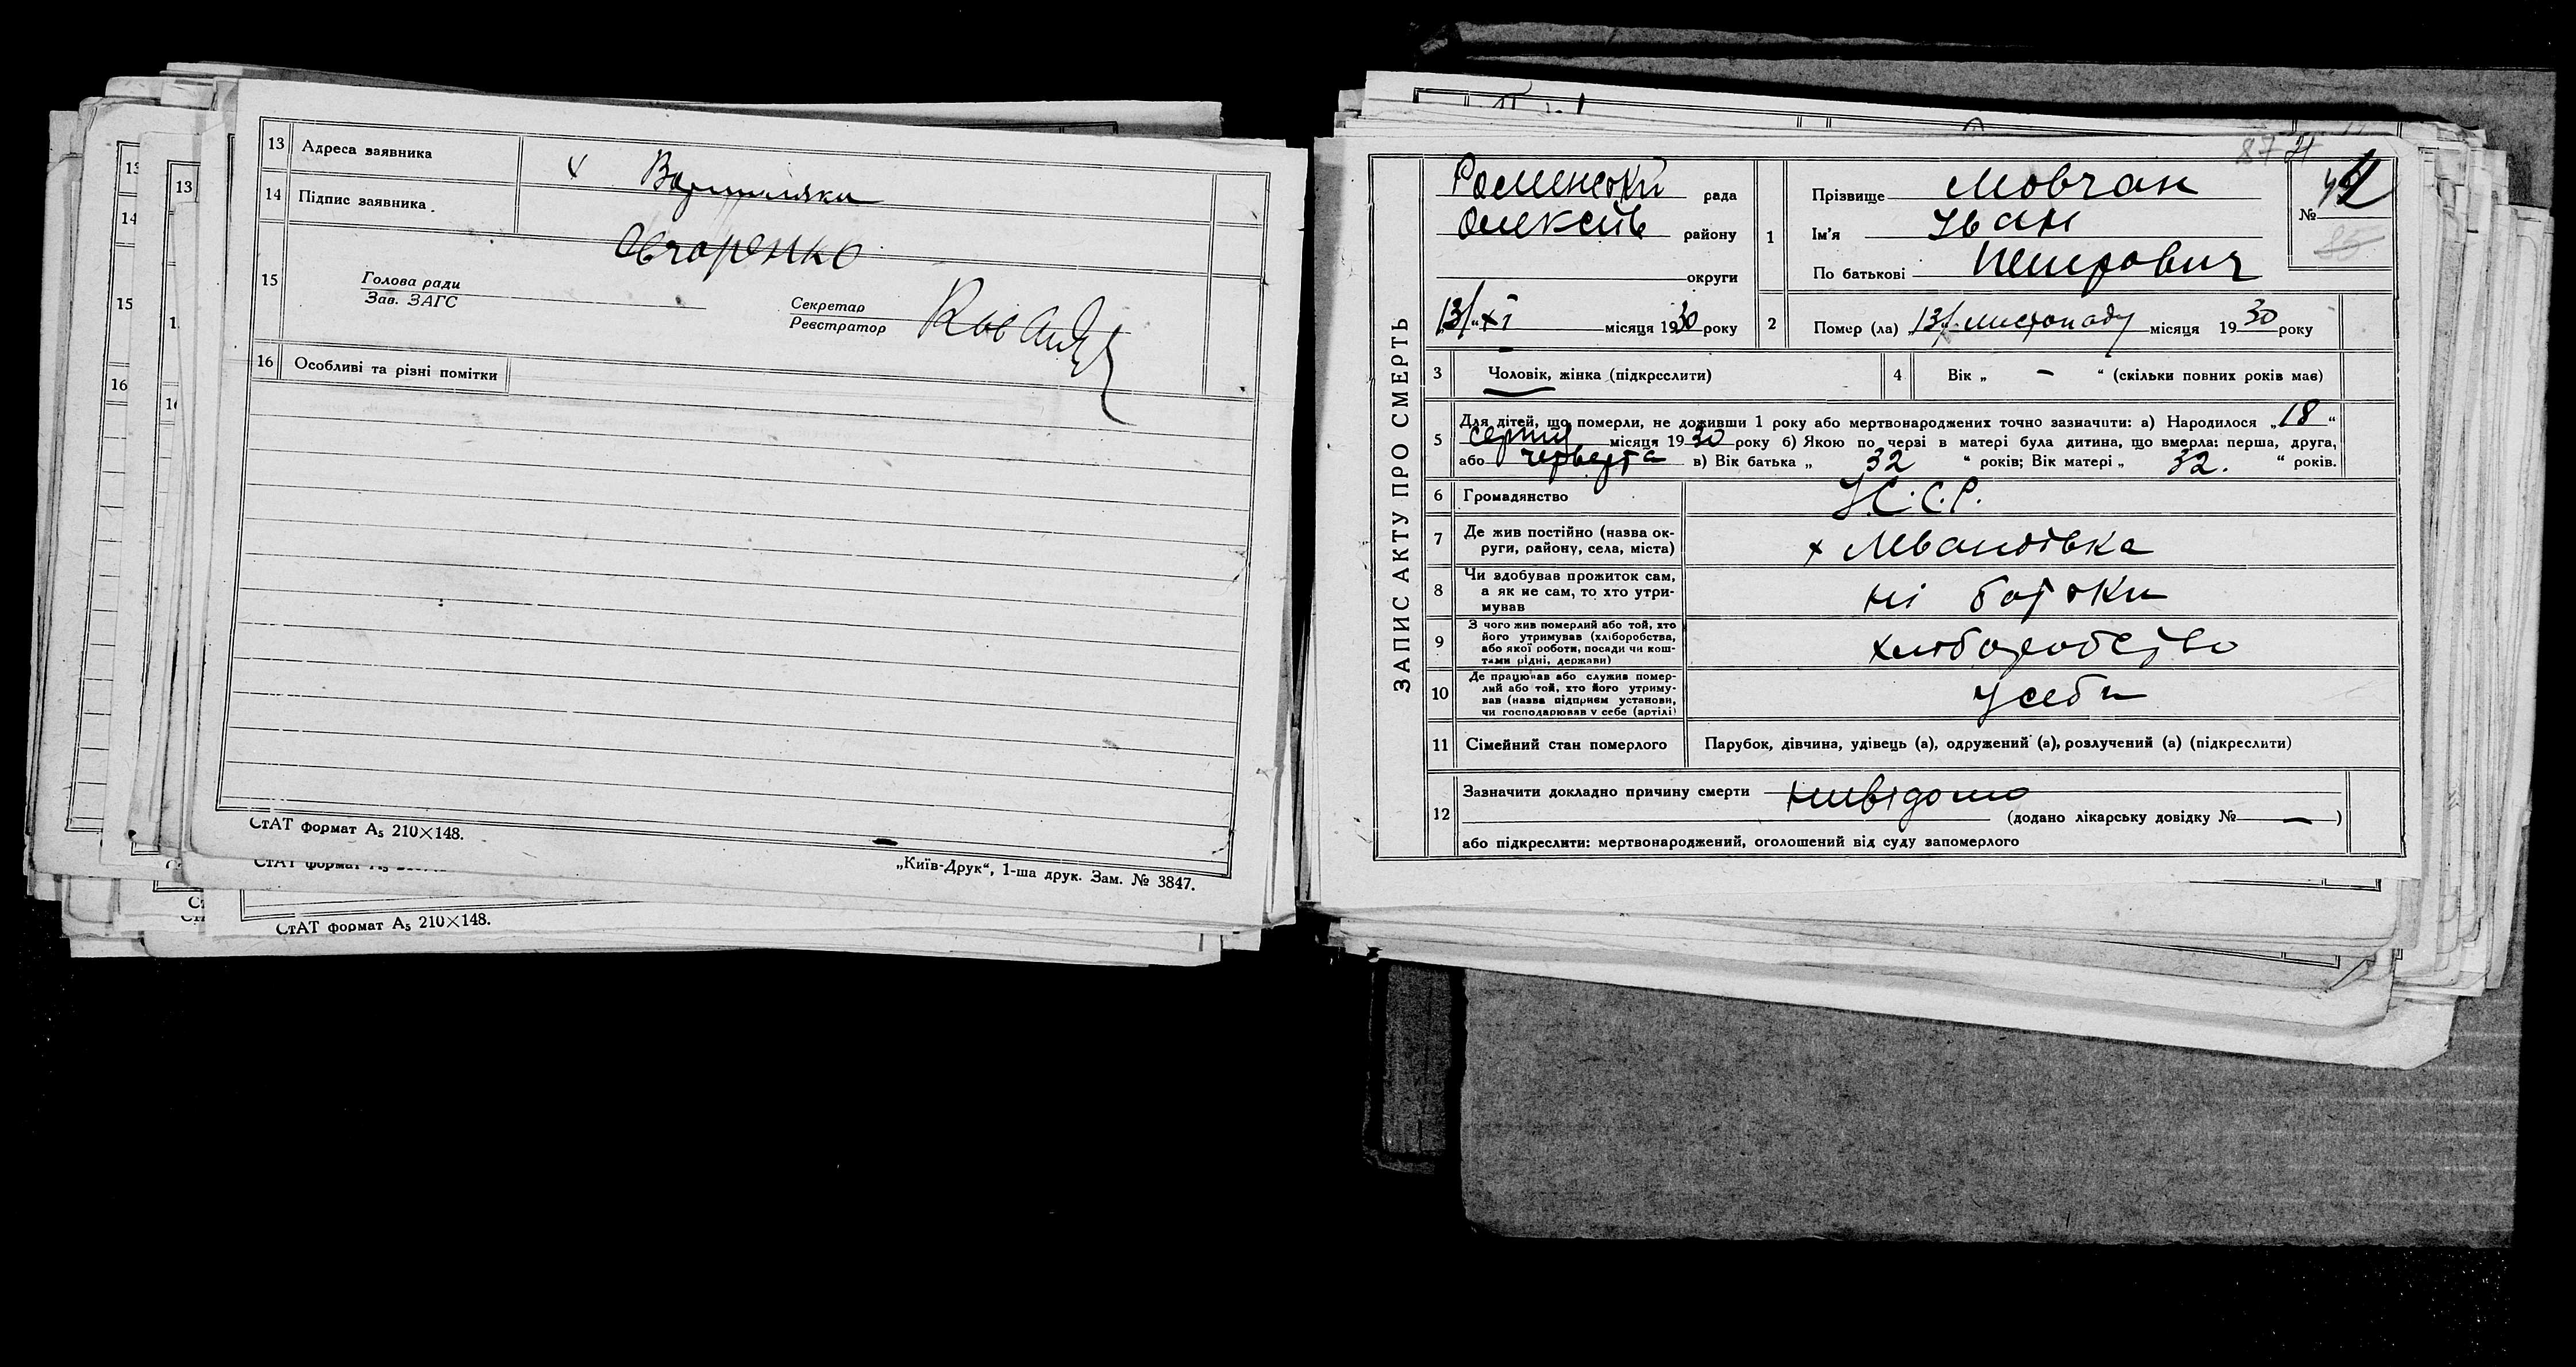 13 Адреса заявника х
14 Підпис заявника
Овчаренко
15 Голова ради
Зав. ЗАГС
Секретар
Реєстратор
16 Особливі та різні помітки
СтАТ формат А₅ 210×148.
„Київ-Друк“, 1-ша друк. Зам. № 3847.
СтАТ формат А₅ 210×148.
87
ЗАПИС АКТУ ПРО СМЕРТЬ
рада
району
округи
„13/“ XI місяця 1930 року
1 Прізвище Мовчан
Ім'я Іван
По батькові Петрович
№
2 Помер (ла) „13“ листопаду місяця 1930 року
3 Чоловік, жінка (підкреслити)
4 Вік „ — “ (скільки повних років мав)
5 Для дітей, що померли, не доживши 1 року або мертвонароджених точно зазначити: а) Народилося „18“
серпня місяця 1930 року б) Якою по черзі в матері була дитина, що вмерла: перша, друга,
або четверта в) Вік батька „ 32 “ років; Вік матері „ 32. “ років.
6 Громадянство У.С.С.Р.
7 Де жив постійно (назва ок-
руги, району, села, міста) х
8 Чи здобував прожиток сам,
а як не сам, то хто утри-
мував ні батьки
9 З чого жив померлий або той, хто
його утримував (хліборобства,
або якої роботи, посади чи кош-
тами рідні, держави) хліборобство
10 Де працював або служив помер-
лий або той, хто його утриму-
вав (назва підприєм установи,
чи господарював у себе (артілі) у себе
11 Сімейний стан померлого Парубок, дівчина, удівець (а), одружений (а), розлучений (а) (підкреслити)
12 Зазначити докладно причину смерти невідомо
(додано лікарську довідку № — )
або підкреслити: мертвонароджений, оголошений від суду запомерлого